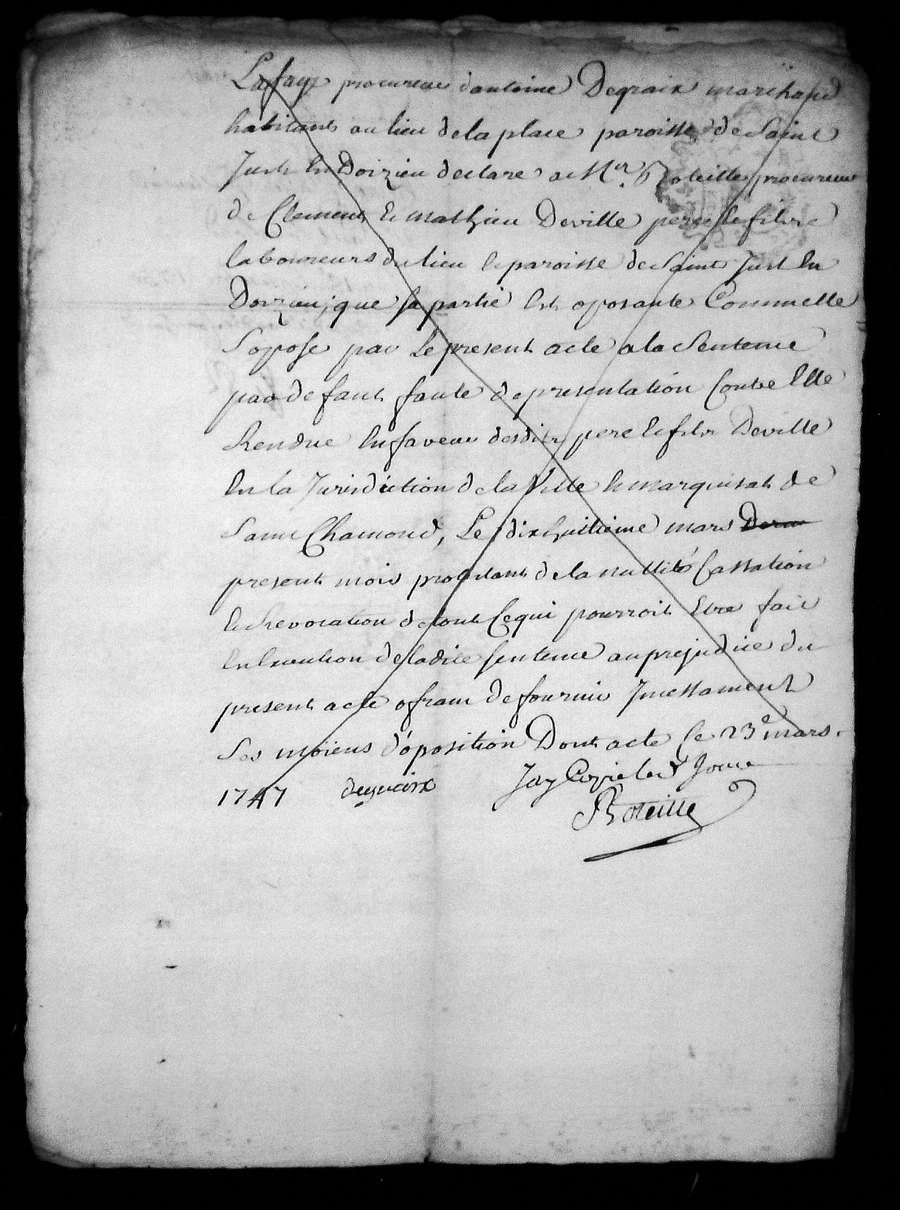 Lafay procureur d'antoine Degraix marchand
habitant au lieu de la place paroisse de Saint
Just En Doizieu declare a Mr. Boteille procureur
de Clement & mathieu Deville pere & filz
laboureurs du lieu & paroisse de Saint Just En
Doizieu, que sa partie Est oposante Comme Elle
Sopose par Le present acte a la Sentence
par defaut faute de presentation Contre Elle
Rendue En faveur desdits pere & filz Deville
En la Jurisdiction de la Ville & marquisat de
Saint Chamond, Le dixhuitieme mars
present mois protestant de la nullité Cassation
& Revocation de tout Ce qui pourroit Etre fait
En Execution de ladite Sentence au prejudice du
present acte ofrant de fournir Incessament
Ses moiens d'oposition Dont acte Ce 23e mars.
1747 degraix Jay Copie led Jour
Boteille